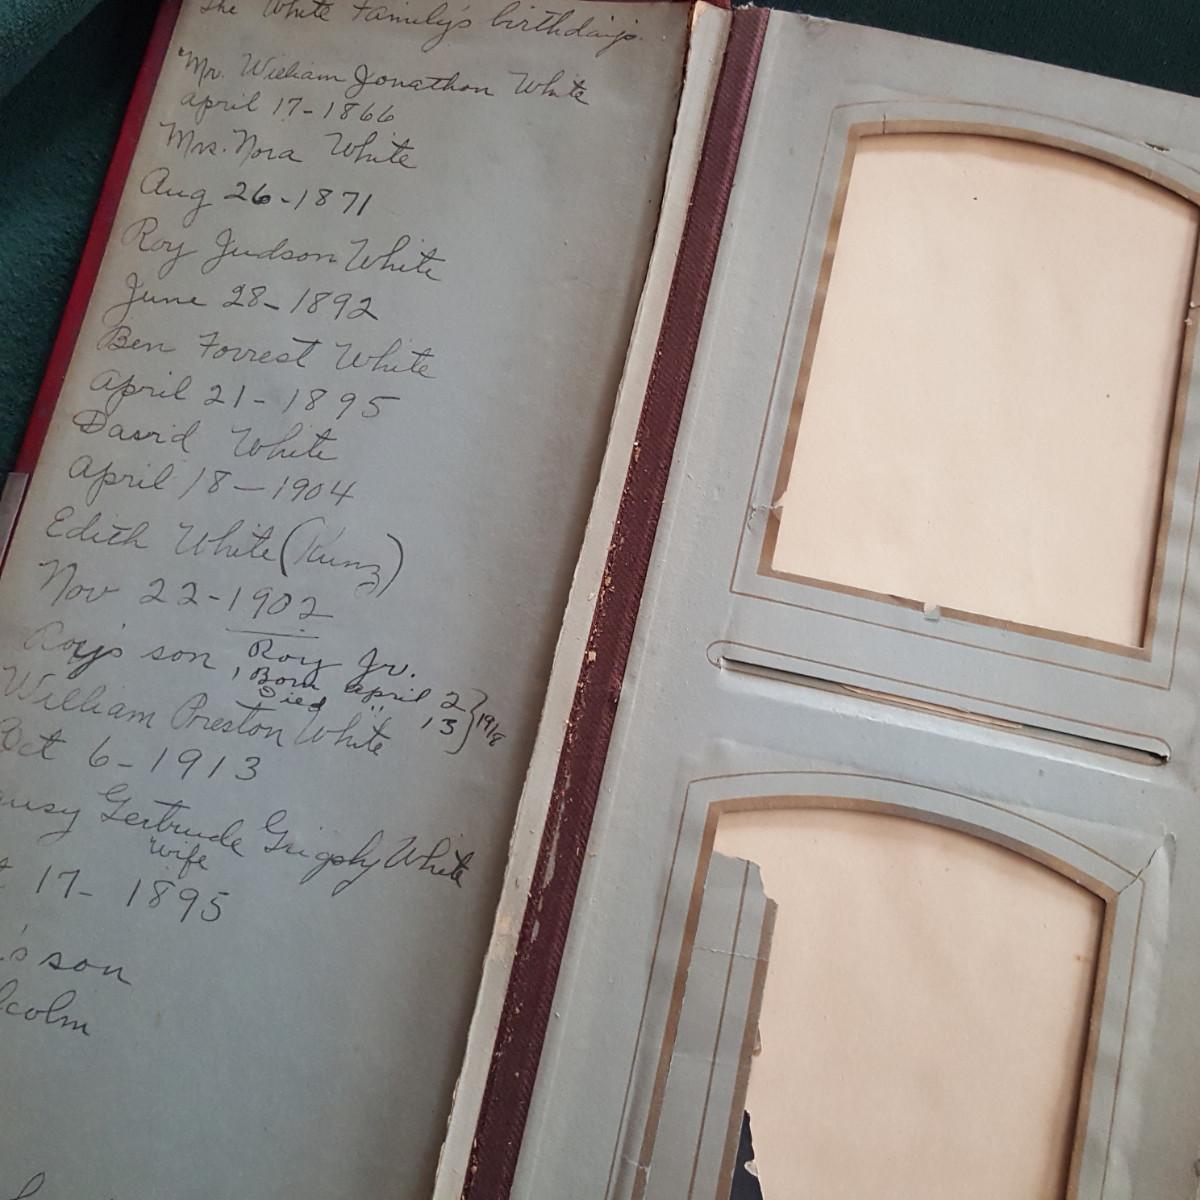 The White Family's birthdays.
"Mr. William Jonathon White
April 17-1866
Mrs. Nora White
Aug 26-1871
Roy Judson White
June 28-1892
Ben Forrest White
April 21-1895
David White
April 18-1904
Edith White (Kunz)
Nov 22-1902
Roy's son Roy Jr.
Born April 2
Died " 13 } 1918
William Preston White
Oct 6-1913
Gertrude Grigsby White
wife
17-1895
's son